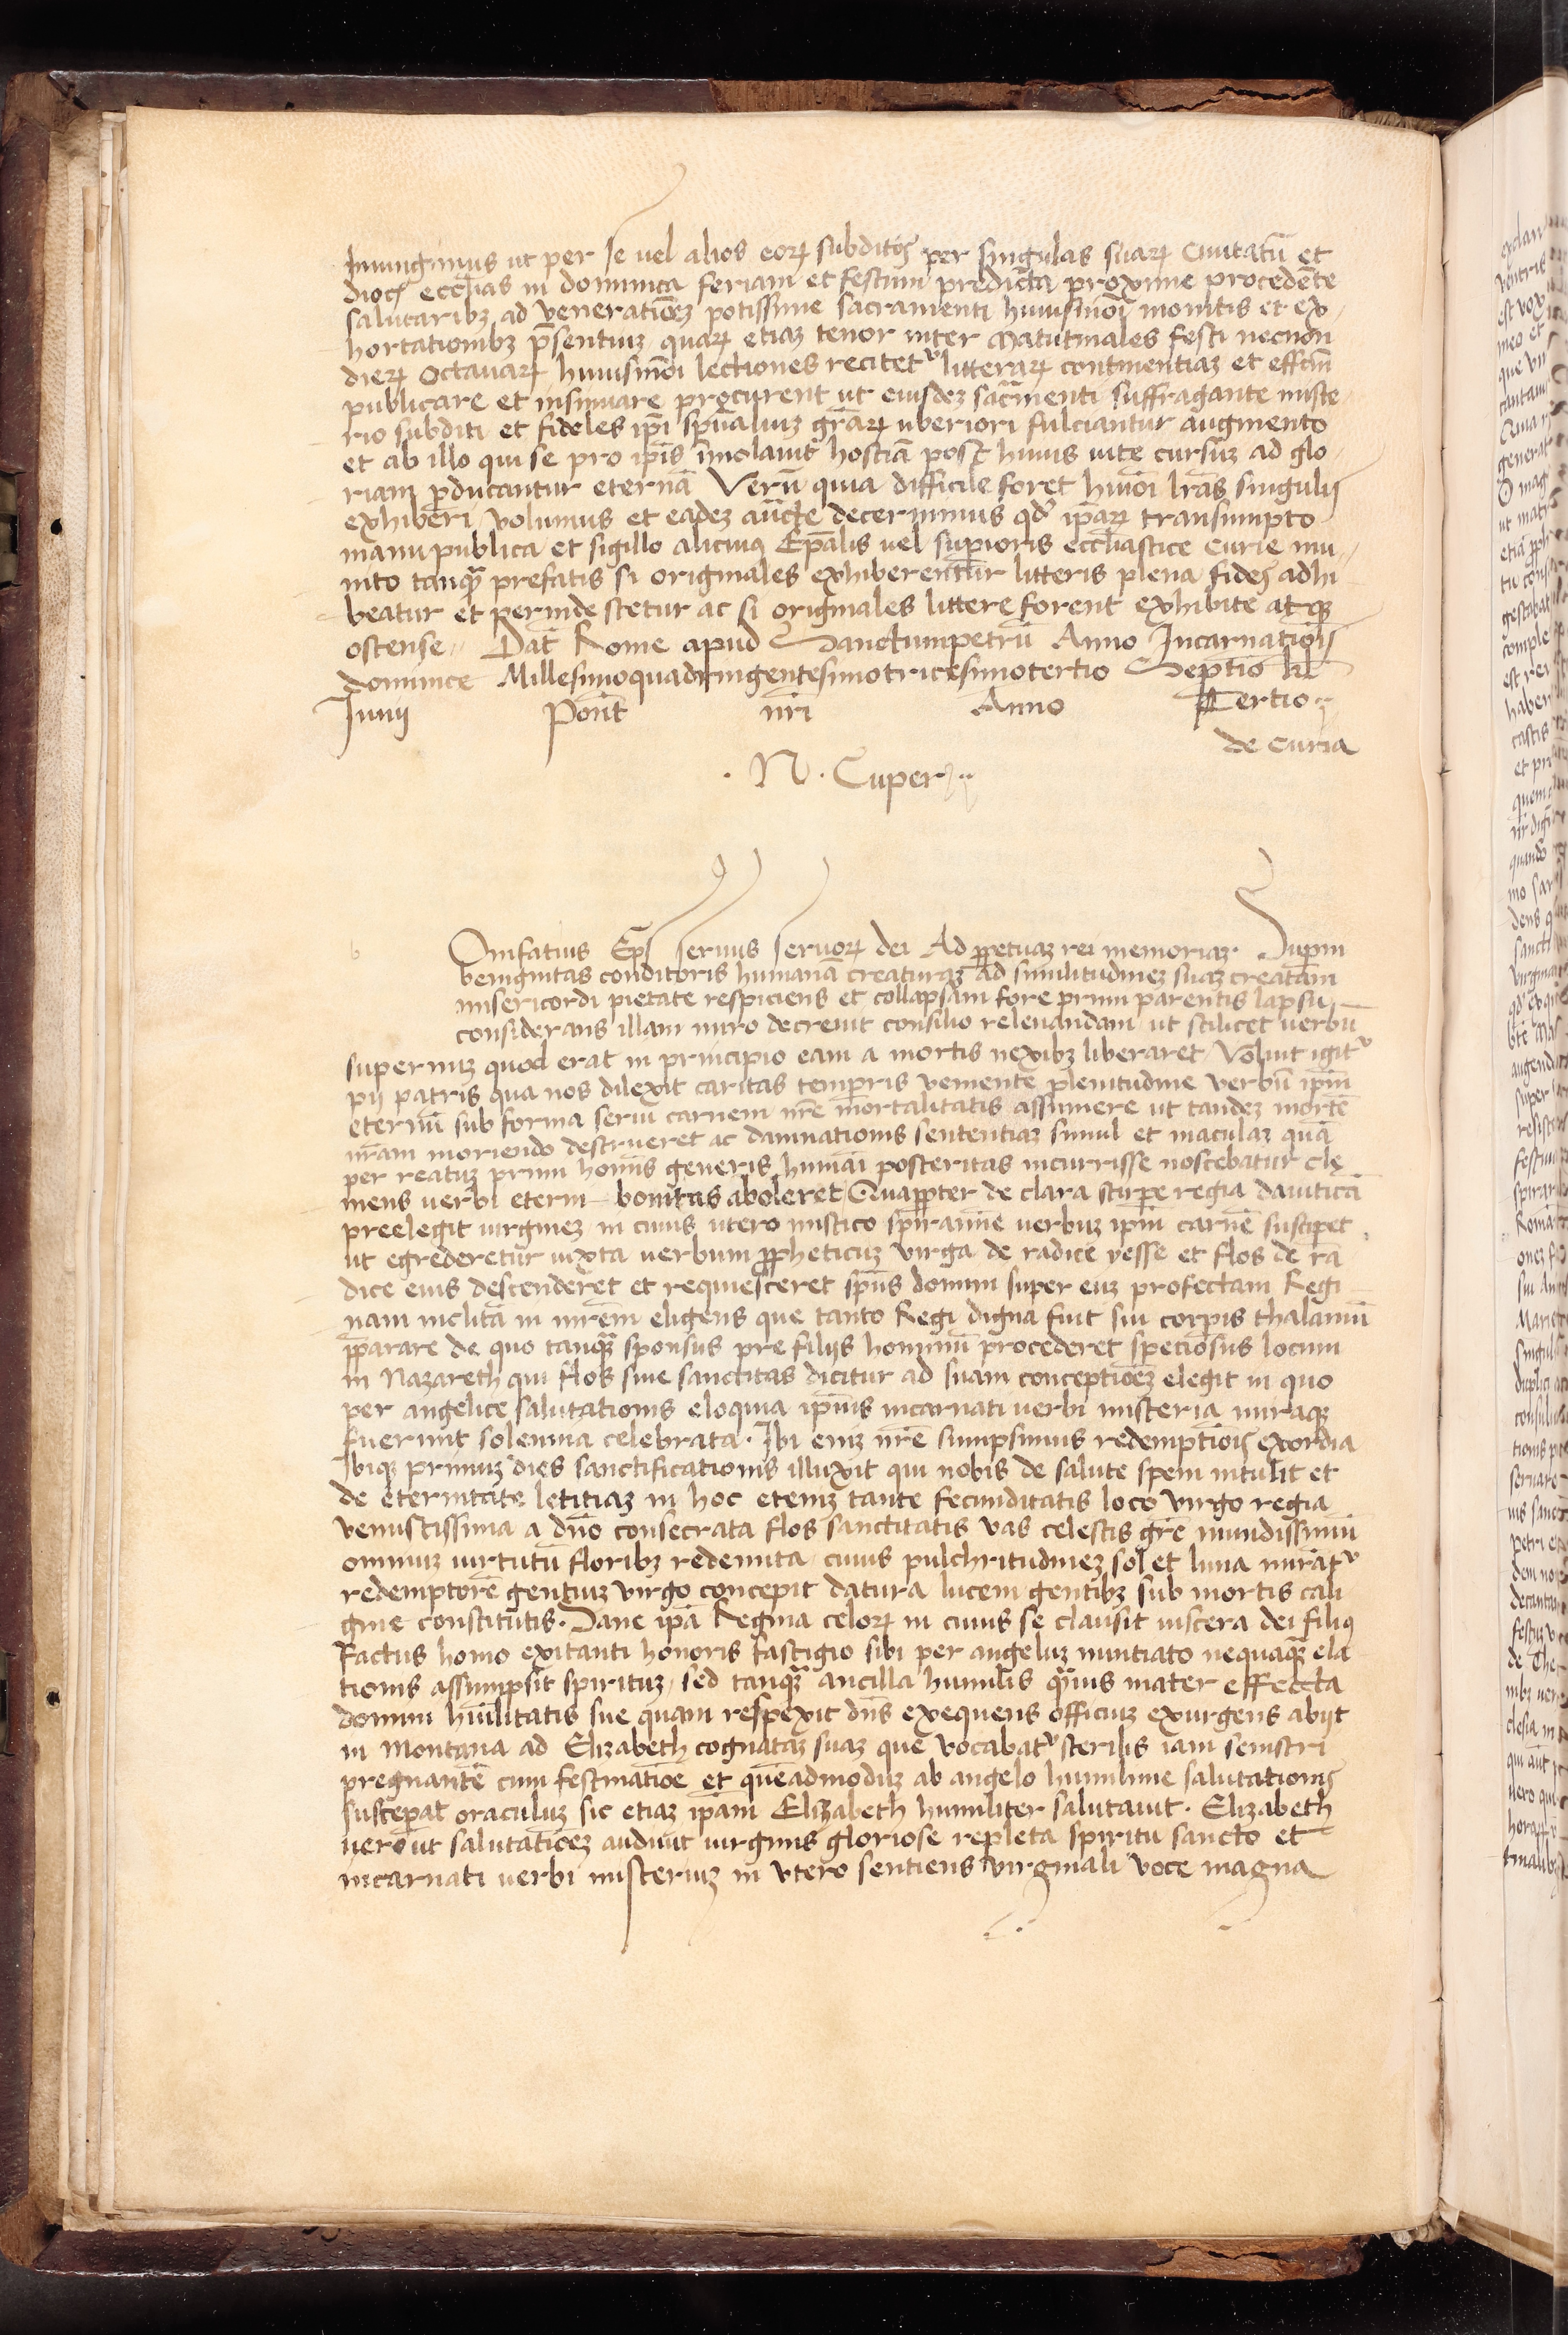 Iniungimus ut per se uel alios eorꝝ subditos per singulas suarꝝ Ciuitatū et
dioc̄ ecclīas in dominica feriam et festum predicta proxime procedēte
salutaribꝫ ad veneratiōeꝫ potissime sacramenti huiusmōi monitis et ex
hortationibꝫ p̄sentiuꝫ quarꝫ etiaꝫ tenor inter Matutinales festi necnōn
dierꝝ Octauarꝝ huiusmōi lectiones recitetᷣ litterarꝝ continentiaꝫ et effcm̄
publicare et insinuare procurent ut eiusdeꝫ sacr̄menti suffragante miste
rio subditi et fideles ip̄i spūaliuꝫ gr̄arꝝ uberiori fulciantur augmento
et ab illo qui se pro ip̄is im̄olauit hostiā post huius uite cursuꝫ ad glo
riam ꝑducantur eternā Verū quia difficile foret hm̄oi lr̄as singulis
exhiberi volumus et eadeꝫ auc̄te decernimus qd' ip̄arꝝ transumpto
manu publica et sigillo alicuiꝯ Ep̄alis uel supioris ecclīastice Curie mu
nito tanqꝫ prefatis si originales exhiberentur litteris plena fides adhi
beatur et perinde stetur ac si originales littere forent exhibite atqꝫ
ostense Dat̄ Rome apud Sanctumpetrū Anno Incarnatiōis
dominice Millesimoquadringentesimotricesimotertio Septio kl̄
Iunij Pont̄ nr̄i Anno Tertio
de Curia
. N. Cuper
b Onifatius Ep̄s seruus seruorꝝ dei Ad ꝑpetuaꝫ rei memoriaꝫ. Supīn
benignitas conditoris humanā creaturaꝫ ad similitudineꝫ suaꝫ creatam
misericordi pietate respiciens et collapsam fore primi parentis lapsu
considerans illam miro decreuit consilio releuandam ut scilicet uerbū
supernuꝫ quod erat in principio eam a mortis nexibꝫ liberaret Voluit igitᷣ
pij patris qua nos dilexit caritas temporis veniente plenitudine verbū ip̄m
eternū sub forma serui carnem nr̄e mortalitatis assumere ut tandeꝫ mortē
nr̄am moriendo destrueret ac damnationis sententiaꝫ simul et maculaꝫ quā
per reatuꝫ primi homīs generis humāi posteritas incurrisse noscebatur cle
mens uerbi eterni bonitas aboleret Quaꝓpter de clara stirpe regia dauiticā
preelegit uirgineꝫ in cuius utero mistico spirāmīe uerbuꝫ ip̄m carnē suscipet
ut egrederetur iuxta uerbum ꝓpheticuꝫ virga de radice yesse et flos de ra
dice eius descenderet et requiesceret spūs domini super euꝫ profectam Regi
nam inclitā in mr̄em eligens que tanto Regi digna fuit sui corpis thalamū
ꝑparare de quo tanqꝫ sponsus pre filijs hominū procederet speciosus locum
in Nazareth qui flos siue sanctitas dicitur ad suam conceptiōeꝫ elegit in quo
per angelice salutationis eloquia ip̄ius incarnati uerbi misteria miraqꝫ
fuerunt solennia celebrata. Ibi eniꝫ nr̄e sumpsimus redemptiōis exordia
Ibiqꝫ primuꝫ dies sanctificationis illuxit qui nobis de salute spem intulit et
de eternitate letitiaꝫ in hoc eteniꝫ tante fecunditatis loco virgo regia
venustissima a dn̄o consecrata flos sanctitatis vas celestis gr̄e mundissimū
omniuꝫ uirtutū floribꝫ redemita cuius pulchritudineꝫ sol et luna mirātᷣ
redemptorē gentiuꝫ virgo concepit datura lucem gentibꝫ sub mortis cali
gine constitutis. Sane ip̄a Regina celorꝝ in cuius se clausit uiscera dei filiꝯ
factus homo exitanti honoris fastigio sibi per angeluꝫ nuntiato nequaqꝫ ela
tionis assumpsit spirituꝫ sed tanqꝫ ancilla humilis quāuis mater effecta
domini hūilitatis sue quam respexit dn̄s exequens officiuꝫ exurgens abijt
in Montana ad Elizabeth cognataꝫ suaꝫ que vocabatᷣ sterilis iam semestri
pregnantē cum festinatiōe et quēadmoduꝫ ab angelo humilime salutationis
suscepat oraculuꝫ sic etiaꝫ ip̄am Elizabeth humiliter salutauit. Elizabeth
uero ut salutatiōeꝫ audiuit uirginis gloriose repleta spiritu sancto et
incarnati uerbi misteriuꝫ in vtero sentiens virginali voce magna